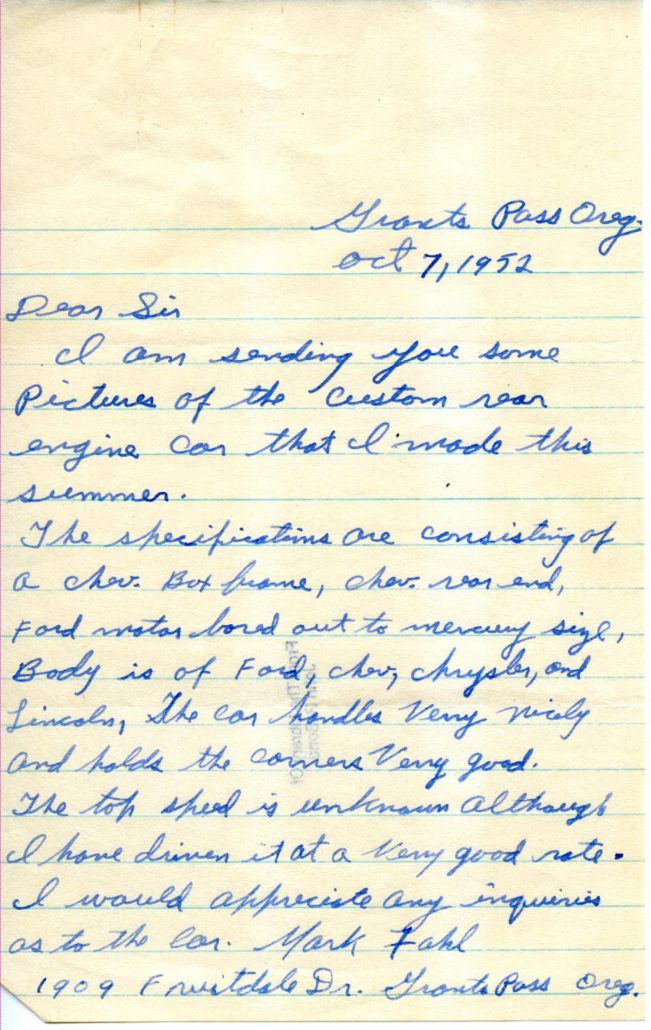 Grants Pass Oreg.
Oct 7, 1952
Dear Sir
I am sending you some
Pictures of the Custom rear
engine Car that I made this
summer.
The specifications are consisting of
a chev. Box frame, chev. rear end,
Ford motor bored out to mercury size,
Body is of Ford, chev, chrysler, and
Lincoln, The car handles Verry nicely
and holds the corners Verry good.
The top speed is unknown although
I have driven it at a Verry good rate.
I would appreciate any inquiries
as to the Car. Mark Fahl
1909 Fruitdale Dr. Grants Pass Oreg.